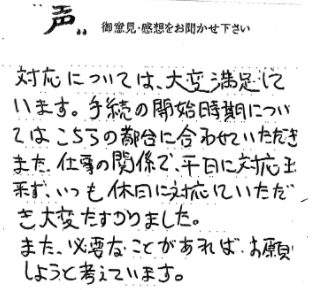 声 御意見・感想をお聞かせ下さい
対応については、大変満足して
います。手続の開始時期につい
てはこちらの都合に合わせていただき
また、仕事の関係で、平日に対応出
来ず、いつも休日に対応していただ
き大変たすかりました。
また、必要なことがあれば、お願
しようと考えています。